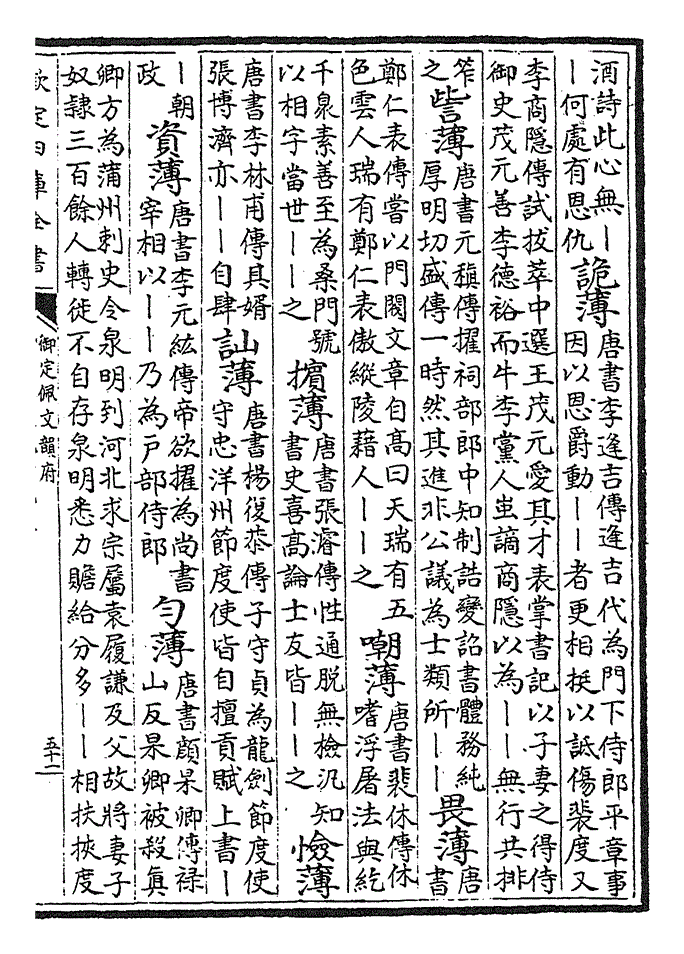 酒詩此心無丨
丨何處有恩仇 詭薄 唐書李逢吉傳逢吉代為門下侍郎平章事
因以恩爵動丨丨者更相挻以詆傷裴度又
李商隱傳試拔萃中選王茂元愛其才表掌書記以子妻之得侍
御史茂元善李德裕而牛李黨人蚩謫商隱以為丨丨無行共排
笮之 訾薄 唐書元稹傳擢祠部郎中知制誥變詔書體務純
厚明切盛傳一時然其進非公議為士類所丨丨 畏薄 唐書
鄭仁表傳嘗以門閥文章自高曰天瑞有五
色雲人瑞有鄭仁表傲縱陵藉人丨丨之 嘲薄 唐書裴休傳休
嗜浮屠法與紇
千泉素善至為桑門號
以相字當世丨丨之 擯薄 唐書張濬傳性通脫無檢汎知
書史喜高論士友皆丨丨之 憸薄
唐書李林甫傳其婿
張博濟亦丨丨自肆 訕薄 唐書楊復恭傳子守貞為龍劍節度使
守忠洋州節度使皆自擅貢賦上書丨
丨朝
政 資薄 唐書李元紘傳帝欲擢為尚書
宰相以丨丨乃為戶部侍郎 勻薄 唐書顏杲卿傳祿
山反杲卿被殺真
卿方為蒲州刺史令泉明到河北求宗屬袁履謙及父故將妻子
奴隷三百餘人轉徙不自存泉明悉力贍給分多丨丨相扶挾度
欽定四庫全書
御定佩文韻府
五十二